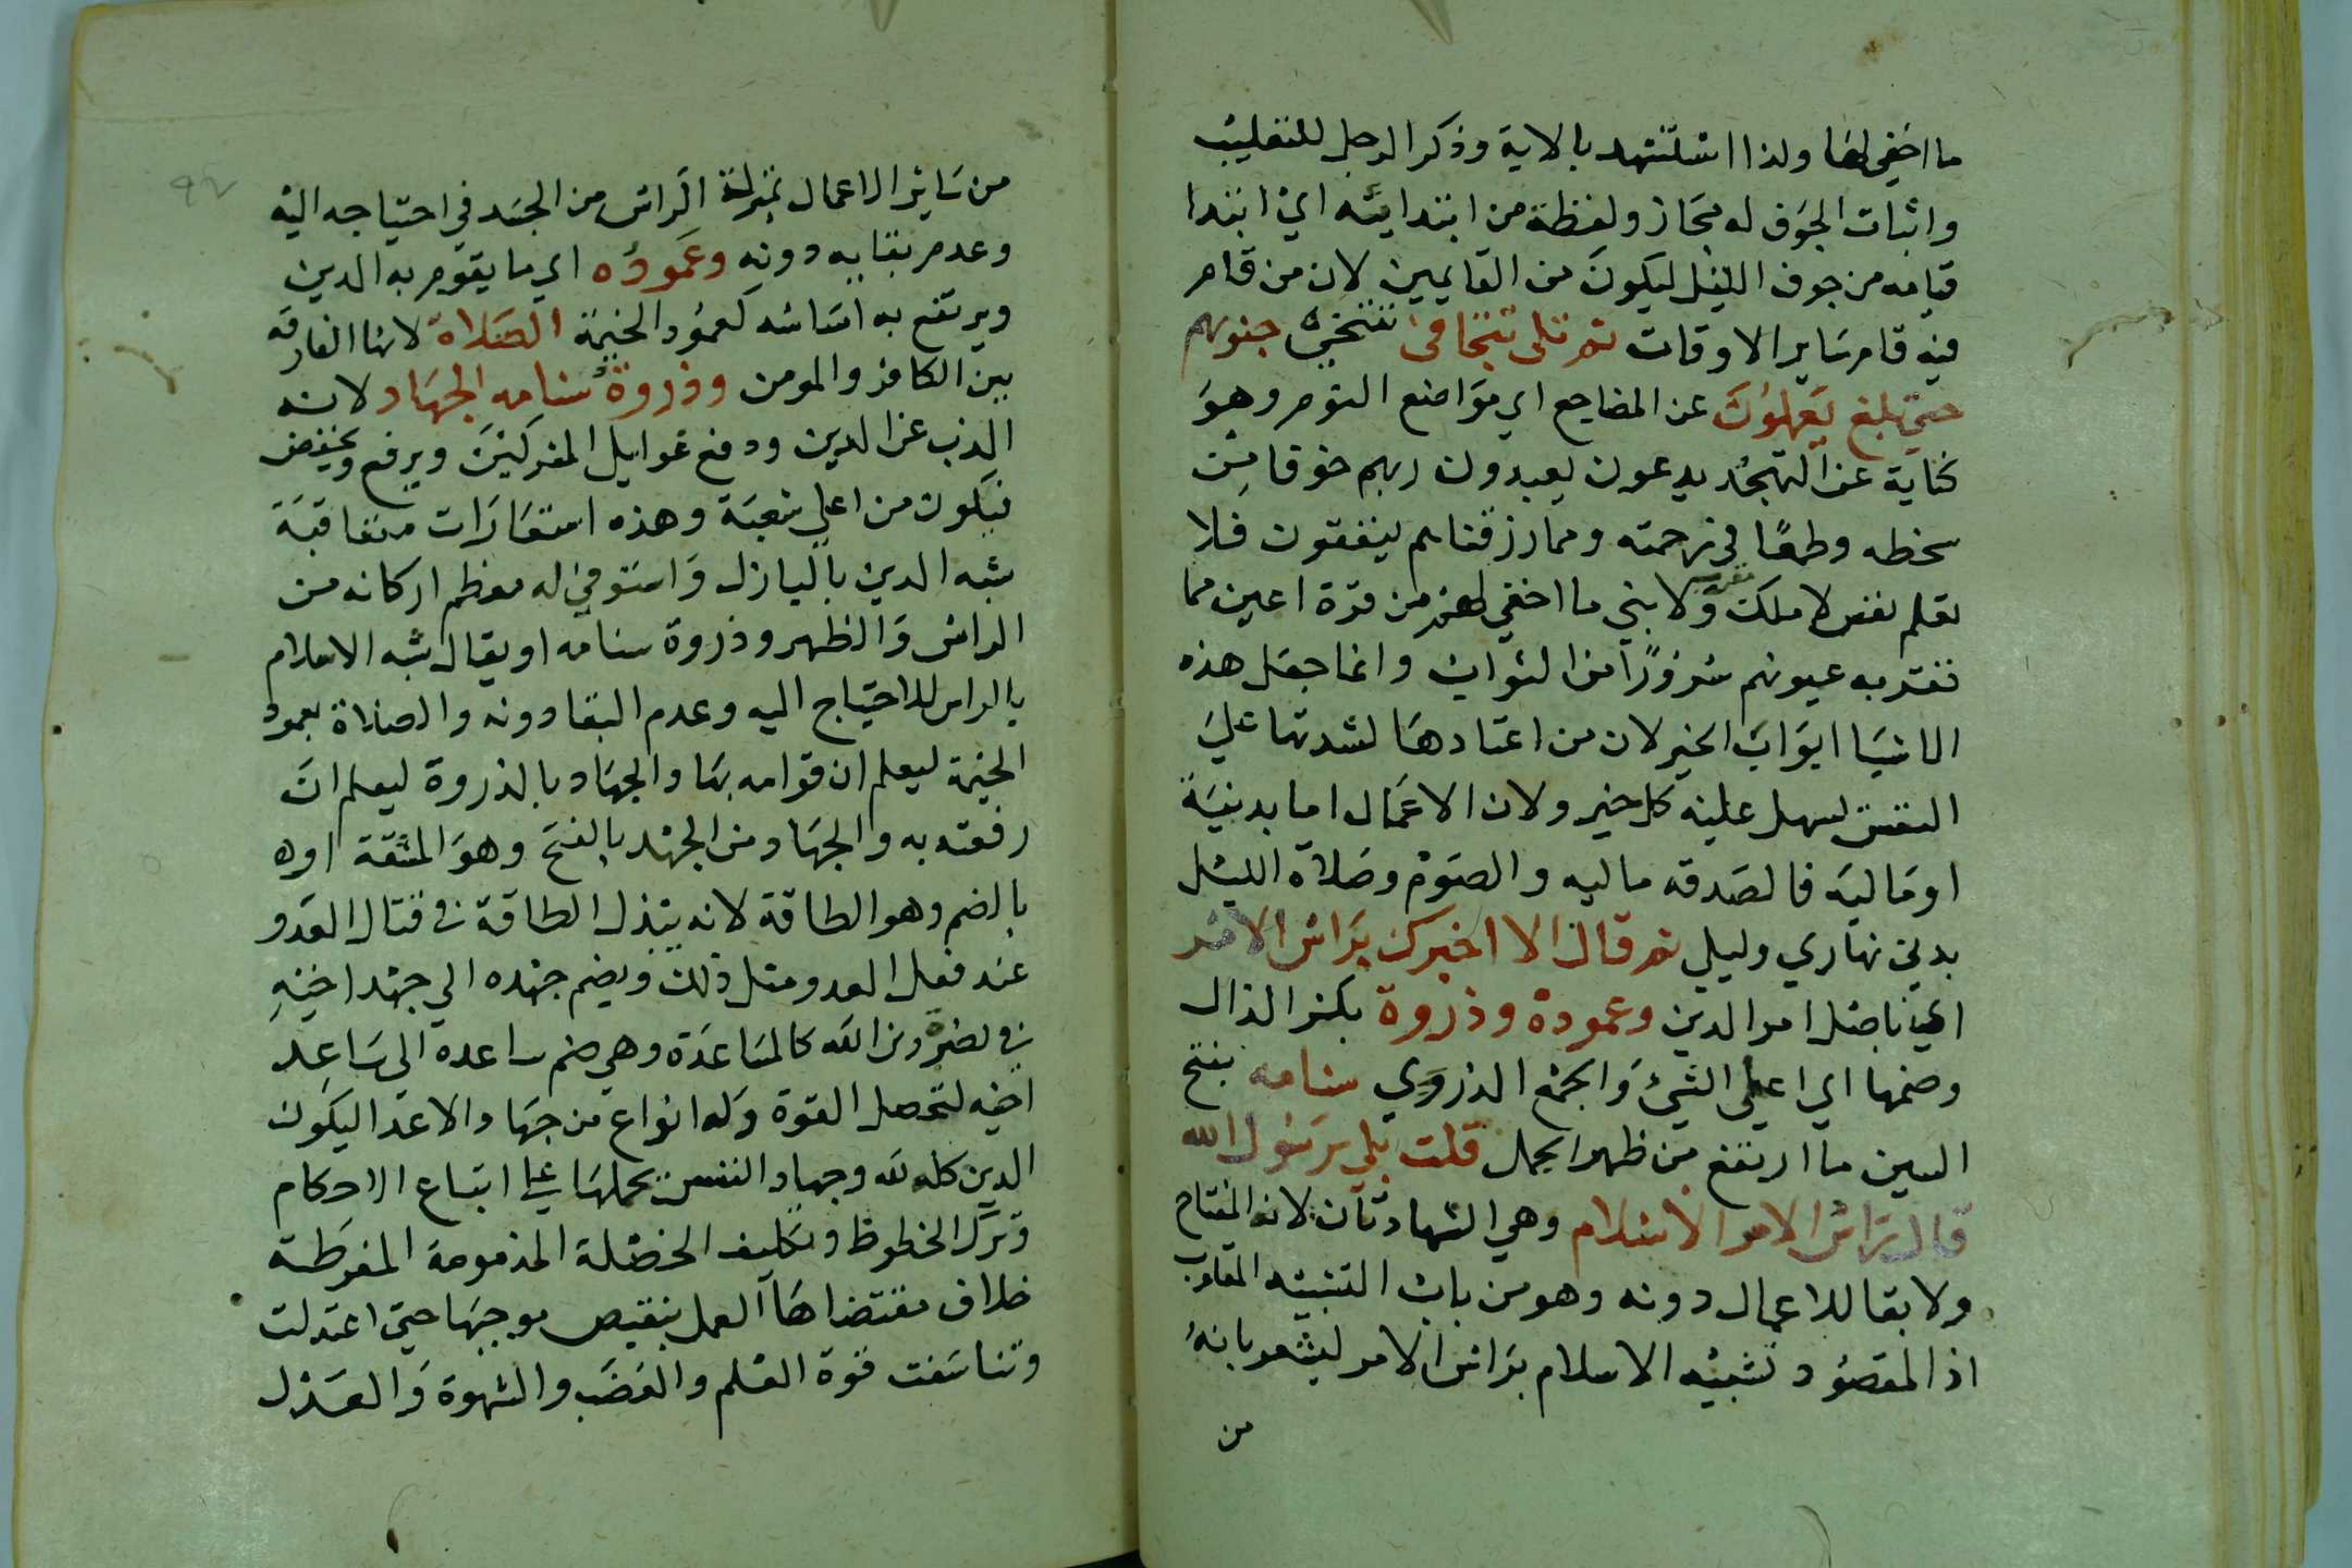 ما اخفي لها ولذا استشهد بالاية وذكر الرجل للتغليب
واثبات الجوف له مجاز ولفظة من ابتدائيته اي ابتدا
قيامه من جوف الليل ليكون من القايمين لان من قام
فيه قام ساير الاوقات ثم تلى تتجافى تتنحى جنوبهم
حتى بلغ يعملون عن المضاجع اي مواضع النوم وهو
كناية عن التهجد يدعون يعبدون ربهم خوفا من
سخطه وطمعا في رحمته ومما رزقناهم ينفقون فلا
تعلم نفس لا ملك مقرب ولا نبي ما اخفي لهم من قرة اعين مما
تقر به عيونهم سرورا من الثواب وانما جعل هذه
الاشيا ابواب الخير لان من اعتادها لشدتها علي
النفس سهل عليه كل خير ولان الاعمال اما بدنية
او مالية فالصدقه ماليه والصوم وصلاة الليل
بدني نهاري وليلي ثم قال الا اخبرك براس الامر
اي باصل امر الدين وعموده وذروة بكسر الذال
وضمها اي اعلى الشيء والجمع الذروي سنامه بفتح
السين ما ارتفع من ظهر الجمل قلت بلي يرسول الله
قال راس الامر الاسلام وهي الشهادتان لانه المفتاح
ولا بقا للاعمال دونه وهو من باب التشبيه المقلوب
اذ المقصود تشبيه الاسلام براس الامر ليشعر بانه
من
من ساير الاعمال بمنزلة الراس من الجسد في احتياجه اليه
وعدم بقايه دونه وعموده اي ما يقوم به الدين
ويرتفع به اساسه كعمود الخيمة الصلاة لانها الفارقه
بين الكافر والمومن وذروة سنامه الجهاد لانه
الذب عن الدين ودفع غوايل المشركين ويرفع ويخفض
فيكون من اعلي شعبة وهذه استعارات متعاقبة
شبه الدين بالبازل واستوفي له معظم اركانه من
الراس والظهر وذروة سنامه او يقال شبه الاسلام
بالراس للاحتياج اليه وعدم البقا دونه والصلاة بعمود
الخيمة ليعلم ان قوامه بها والجهاد بالذروة ليعلم ان
رفعته به والجهاد من الجهد بالفتح وهو المشقة او ه
بالضم وهو الطاقة لانه يبذل الطاقة في قتال العدو
عند فعل العدو مثل ذلك ويضم جهده الي جهد اخيه
في نصرة دين الله كالمساعدة وهي ضم ساعده الي ساعد
اخيه لتحصل القوة وله انواع من جهاد الاعدا ليكون
الدين كله لله وجهاد النفس بحملها علي اتباع الاحكام
وترك الحظوظ وتكليف الخصلة المذمومة المفرطة
خلاف مقتضاها العمل بنقيض موجبها حتى اعتدلت
وتناسقت قوة العلم والغضب والشهوة والعدل